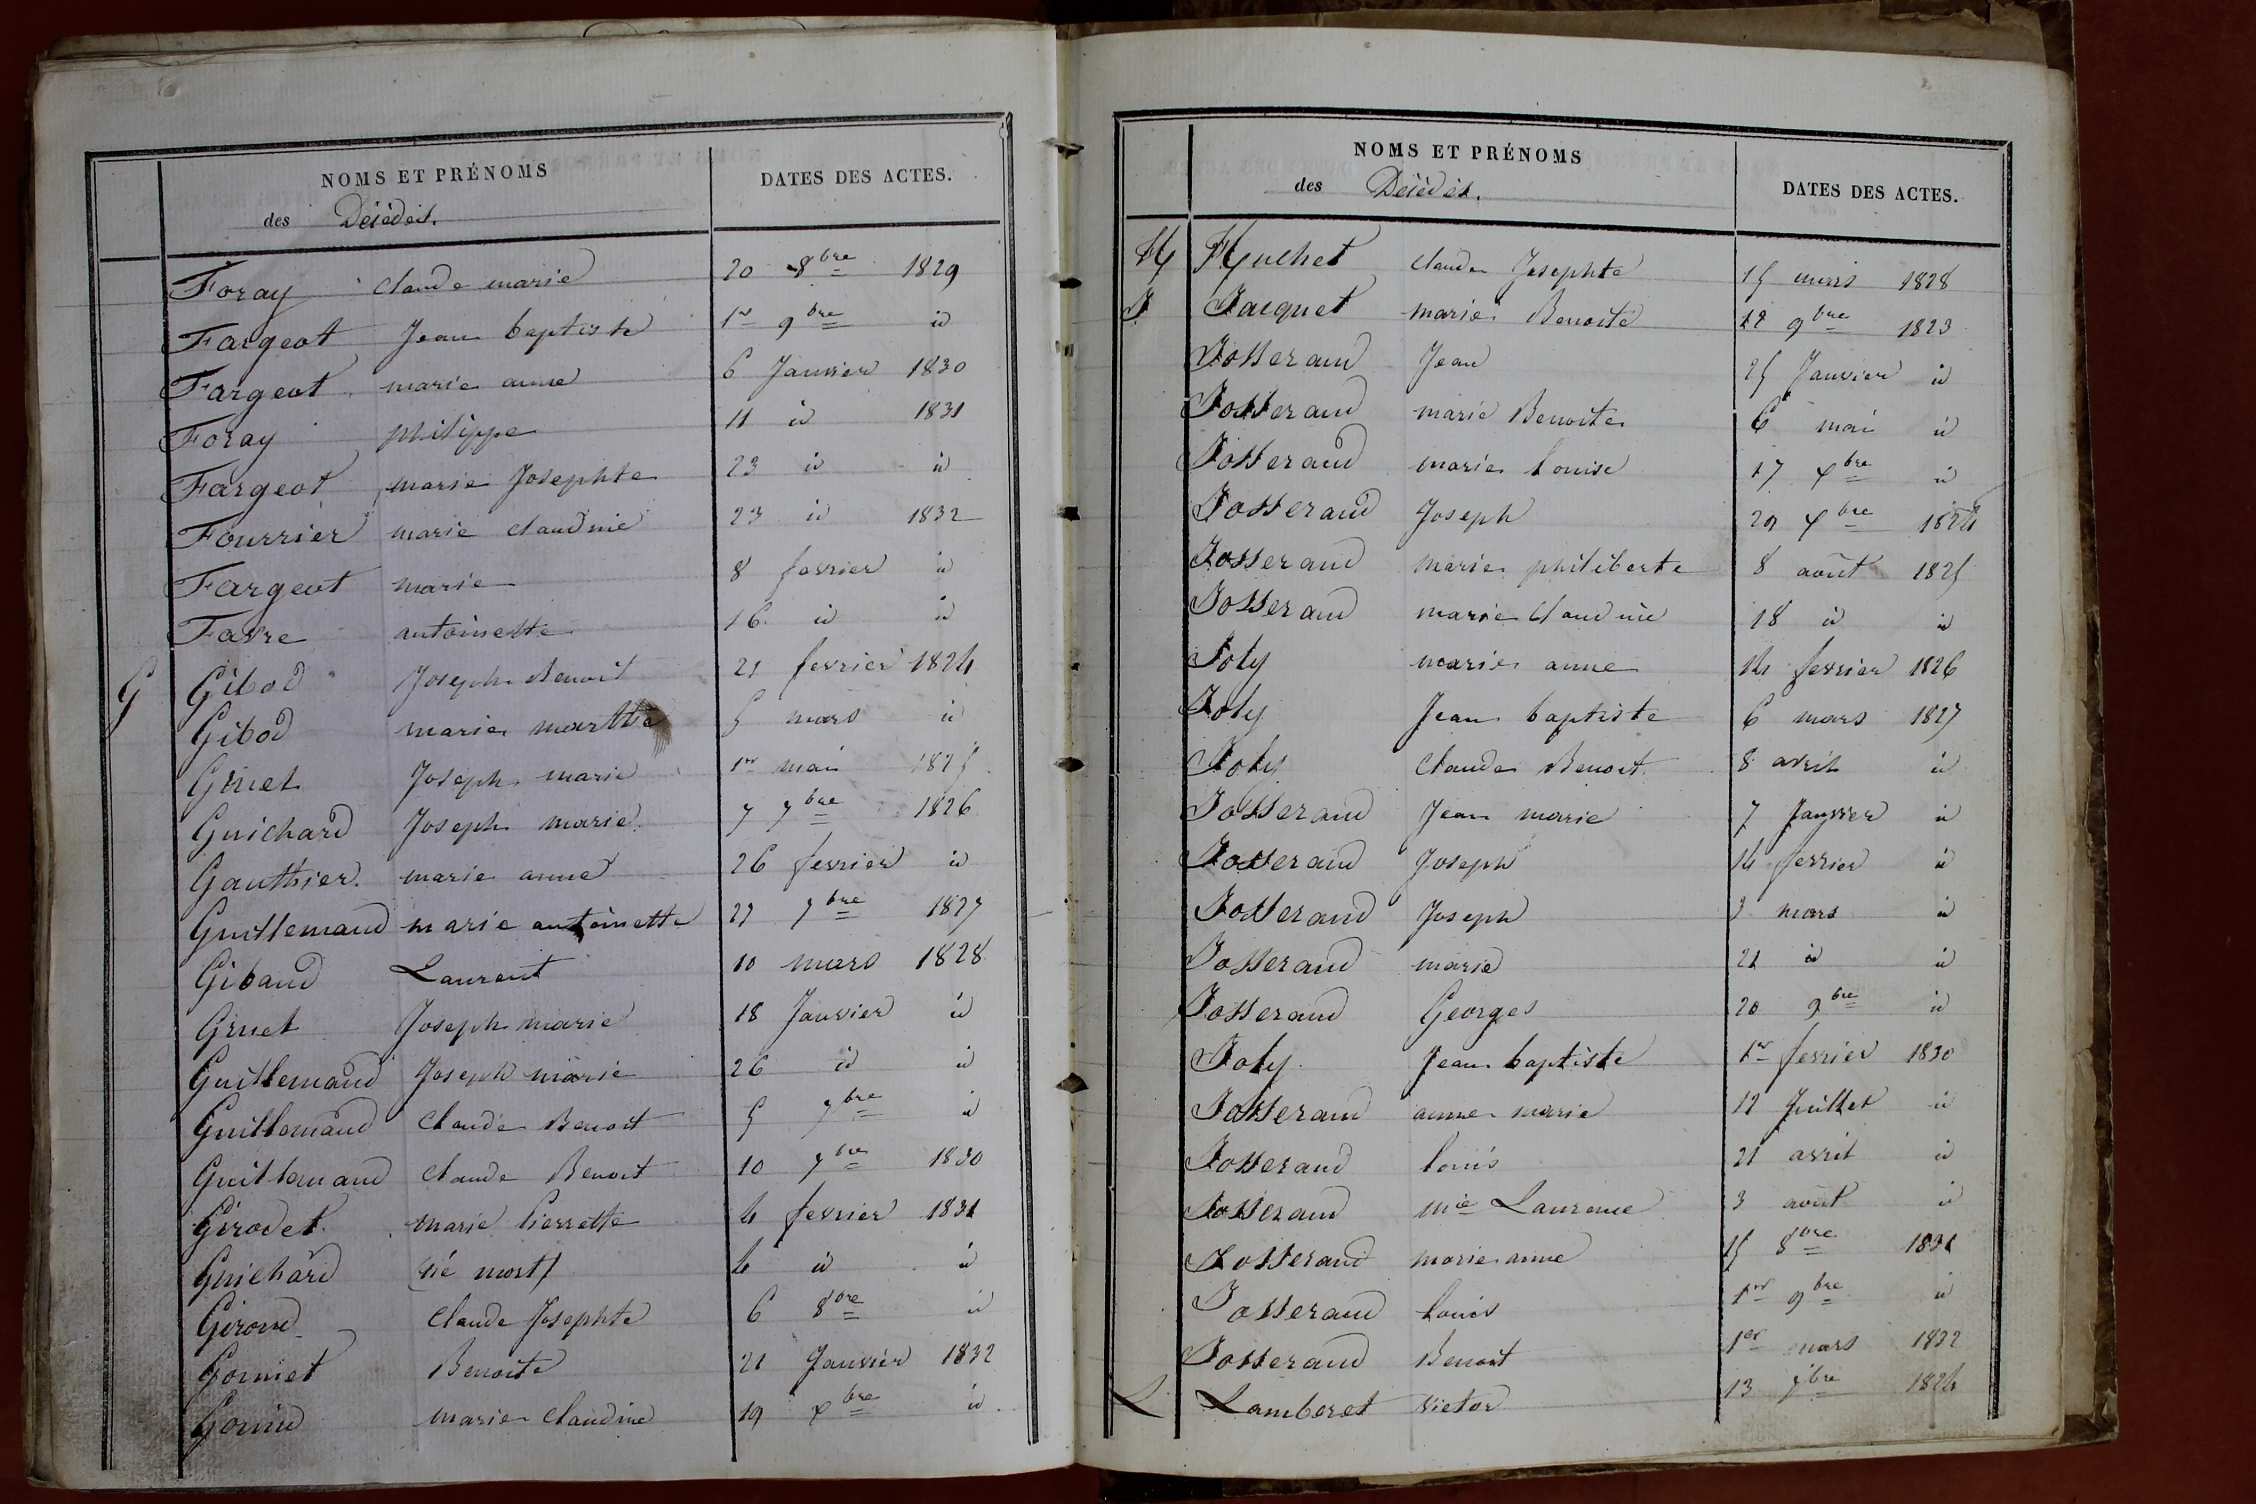 NOMS ET PRÉNOMS
des Décédés.
DATES DES ACTES.
Foray claude marie 20 8bre 1829
Fargeot Jean baptiste 1er 9bre id
Fargeot marie anne 6 Janvier 1830
Foray philippe 11 id 1831
Fargeot marie Josephte 23 id id
Fourrier marie claudine 23 id 1832
Fargeot marie 8 fevrier id
Favre antoinette 16 id id
G Gibod Joseph Benoit 21 fevrier 1824
Gibod marie marthe 5 mars id
Gruet Joseph marie 1er mai 1825
Guichard Joseph marie 7 7bre 1826
Gauthier marie anne 26 fevrier id
Guillemaud marie antoinette 27 7bre 1827
Gibaud Laurent 10 mars 1828
Gruet Joseph marie 18 Janvier id
Guillemaud Joseph marie 26 id id
Guillemaud claude Benoit 5 7bre id
Guillemaud claude Benoit 10 7bre 1830
Girodet marie Pierrette 4 fevrier 1831
Guichard (né mort) 4 id id
Giroud claude Josephte 6 8bre id
Gorniet Benoite 21 Janvier 1832
marie claudine 19 xbre id
NOMS ET PRÉNOMS
des Décédés.
DATES DES ACTES.
H Huchet claude Josephte 15 mars 1828
J Jacquet marie Benoite 12 9bre 1823
Josserand Jean 25 Janvier id
Josserand marie Benoite 6 mai id
Josserand marie Louise 17 xbre id
Josserand Joseph 29 xbre 1824
Josserand marie philiberte 8 août 1825
Josserand marie claudine 18 id id
Joly marie anne 14 fevrier 1826
Joly Jean baptiste 6 mars 1827
Joly claude Benoit 8 avril id
Josserand Jean marie 7 Janvier id
Josserand Joseph 14 fevrier id
Josserand Joseph 3 mars id
Josserand marie 21 id id
Josserand Georges 20 9bre id
Joly Jean baptiste 1er fevrier 1830
Josserand anne marie 12 Juillet id
Josserand Louis 21 avril id
Josserand mie Laurence 3 août id
Josserand marie anne 15 8bre 1831
Josserand Louis 1er 9bre id
Josserand Benoit 1er mars 1832
L Lamberet victor 13 7bre 1824